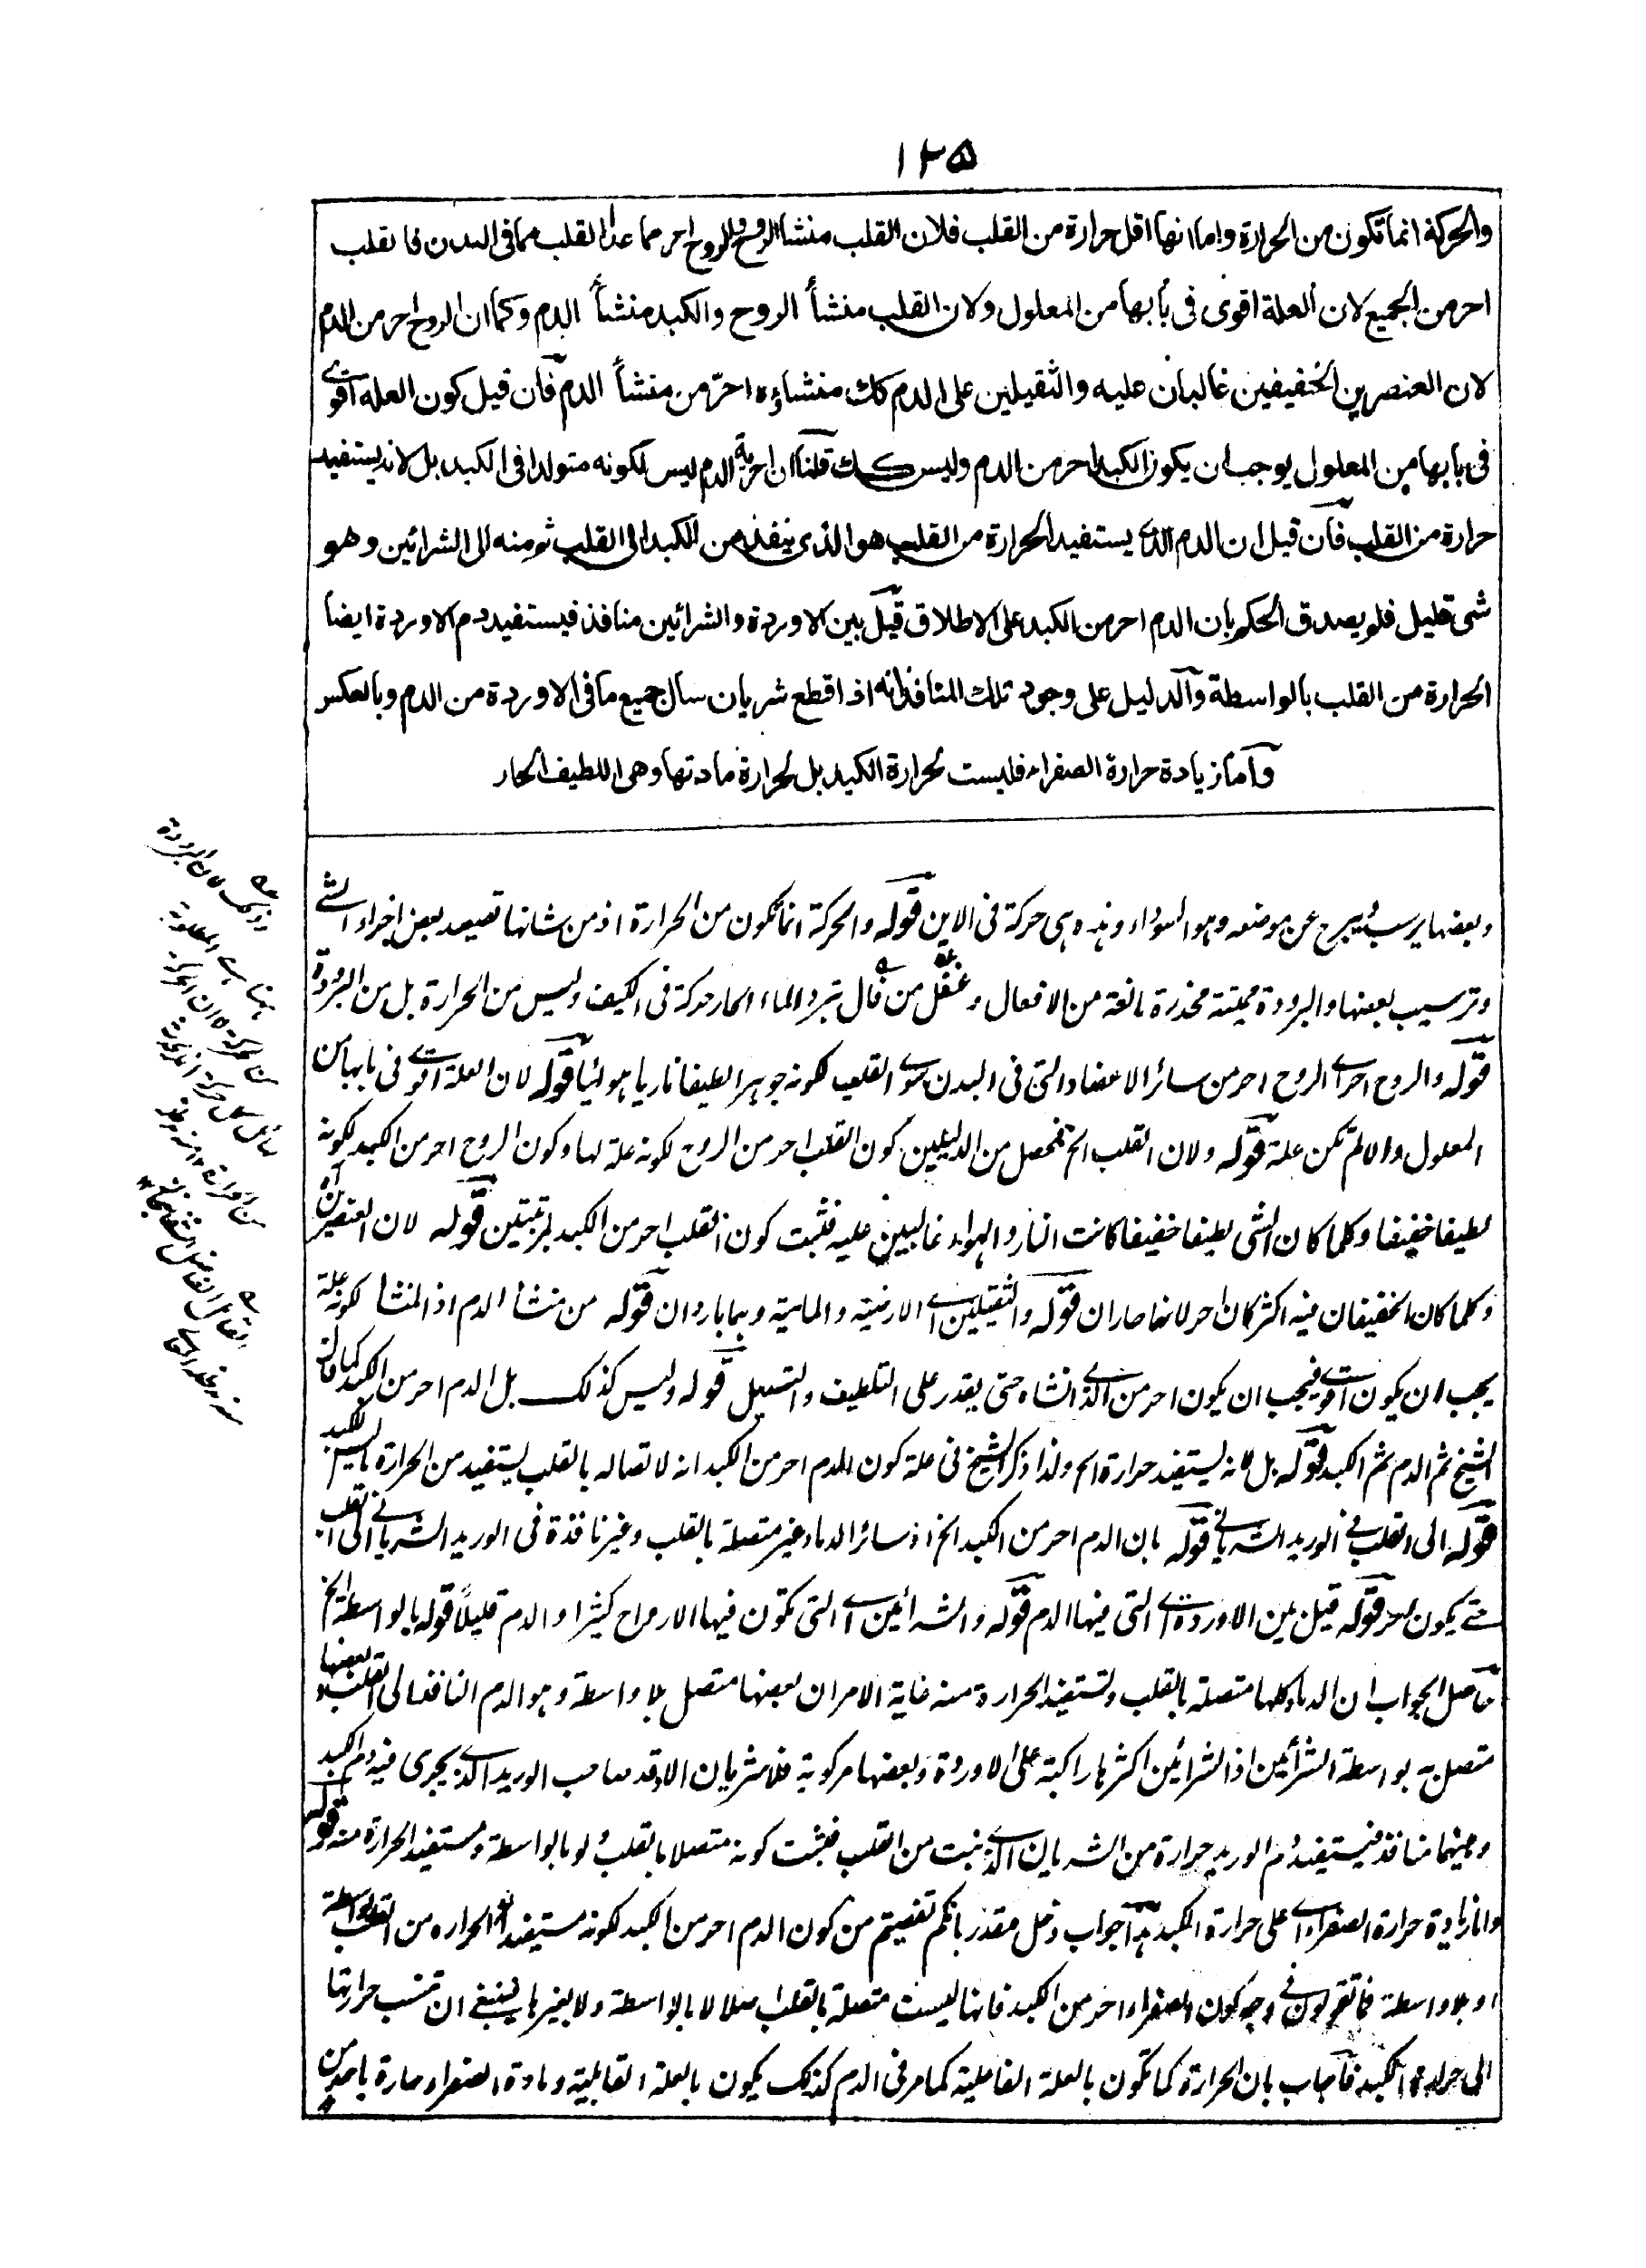 ١٢٥
والحركة انما تكون من الحرارة واما انها اقل حرارة من القلب فلان القلب منشا الروح والروح احر مما عدا القلب مما فى البدن فالقلب
احر من الجميع لان العلة اقوى فى بابها من المعلول ولان القلب منشأ الروح والكبد منشأ الدم وكما ان الروح احر من الدم
لان العنصرين الخفيفين غالبان عليه والثقيلين على الدم كك منشاؤه احرّ من منشأ الدم فان قيل كون العلة اقوى
فى بابها من المعلول يوجب ان يكون الكبد احر من الدم وليس كك قلنا ان احرية الدم ليس لكونه متولدا فى الكبد بل لانه يستفيد
حرارة من القلب فان قيل ان الدم الذى يستفيد الحرارة من القلب هو الذى ينفذ من الكبد الى القلب ثم منه الى الشرائين وهو
شى قليل فلم يصدق الحكم بان الدم احر من الكبد على الاطلاق قيل بين الاوردة والشرائين منافذ فيستفيد دم الاوردة ايضا
الحرارة من القلب بالواسطة والدليل على وجود تلك المنافذ انه اذا قطع شريان سال جميع ما فى الاوردة من الدم وبالعكس
واما زيادة حرارة الصفراء فليست لحرارة الكبد بل لحرارة مادتها وهى اللطيف الحار
وبعضها يرسب ويبرح عن موضعه وهو السوداء وهذه هى حركة فى الاين قوله والحركة انما تكون من الحرارة اذ من شانها تصعيد بعض اجزاء الشى
وترسيب بعضها والبرودة مميتة مخدرة مانعة من الافعال وغفل من قال تبرد الماء الحار حركة فى الكيف وليس من الحرارة بل من البرودة
قوله والروح احر اى الروح احر من سائر الاعضاء التى فى البدن سوى القلب لكونه جوهرا لطيفا ناريا هوائيا قوله لان العلة اقوى فى بابها من
المعلول والا لم تكن علة قوله ولان القلب الخ تحصل من الدليلين كون القلب احر من الروح لكونه علة لها وكون الروح احر من الكبد لكونه
لطيفا خفيفا وكلما كان الشى لطيفا خفيفا كانت النار والهواء غالبين عليه فثبت كون القلب احر من الكبد بمرتبتين قوله لان العنصرين اه
وكلما كان الخفيفان فيه اكثر كان احر لانهما حاران قوله والثقيلين اى الارضية والمائية وهما باردان قوله من منشأ الدم اذ المنشا لكونه علة
يجب ان يكون اقوى فيجب ان يكون احر من الذى انشاه حتى يقدر على التلطيف والتسييل قوله وليس كذلك بل الدم احر من الكبد كما قال
الشيخ ثم الدم ثم الكبد قوله بل لانه يستفيد حرارة الخ ولذا ذكر الشيخ فى علة كون الدم احر من الكبد انه لاتصاله بالقلب يستفيد من الحرارة ما ليس للكبد
قوله الى القلب فى الوريد الشريانى قوله بان الدم احر من الكبد الخ اذ سائر الدماء غير متصلة بالقلب وغير نافذة فى الوريد الشريانى الى القلب
حتى يكون احر قوله قيل بين الاوردة اى التى فيها الدم قوله والشرائين اى التى تكون فيها الارواح كثيرا والدم قليلاً قوله بالواسطة الخ
حاصل الجواب ان الدماء كلها متصلة بالقلب وتستفيد الحرارة منه غاية الامر ان بعضها متصل بلا واسطة وهو الدم النافذ الى القلب وبعضها
متصل به بواسطة الشرائين اذ الشرائين اكثرها راكبة على الاوردة وبعضها مركوبة فلا شريان الا وقد صاحب الوريد الذى يجرى فيه دم الكبد
وبينهما منافذ فيستفيد دم الوريد حرارة من الشريان الذى نبت من القلب فثبت كونه متصلا بالقلب ولو بالواسطة ومستفيد الحرارة منه قوله
واما زيادة حرارة الصفراء اى على حرارة الكبد هذا جواب دخل مقدر بانكم تفصيتم من كون الدم احر من الكبد لكونه مستفيد الحرارة من القلب بواسطة
او بلا واسطة فما تقولون فى وجه كون الصفراء احر من الكبد فانها ليست متصلة بالقلب اصلا لا بالواسطة ولا بغيرها فينبغى ان تنسب حرارتها
الى حرارة الكبد فاجاب بان الحرارة كما تكون بالعلة الفاعلية كما مر فى الدم كذلك يكون بالعلة القابلية ومادة الصفراء حارة باحد من